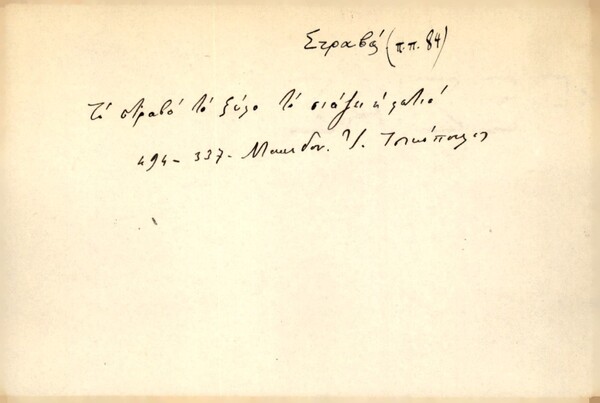 Στραβός (π.π. 84)
Τό στραβό τό ξύλο τό σιάζει ἡ φωτιά
494 - 337 - Μακεδον. Ἰ. Τσικόπουλος